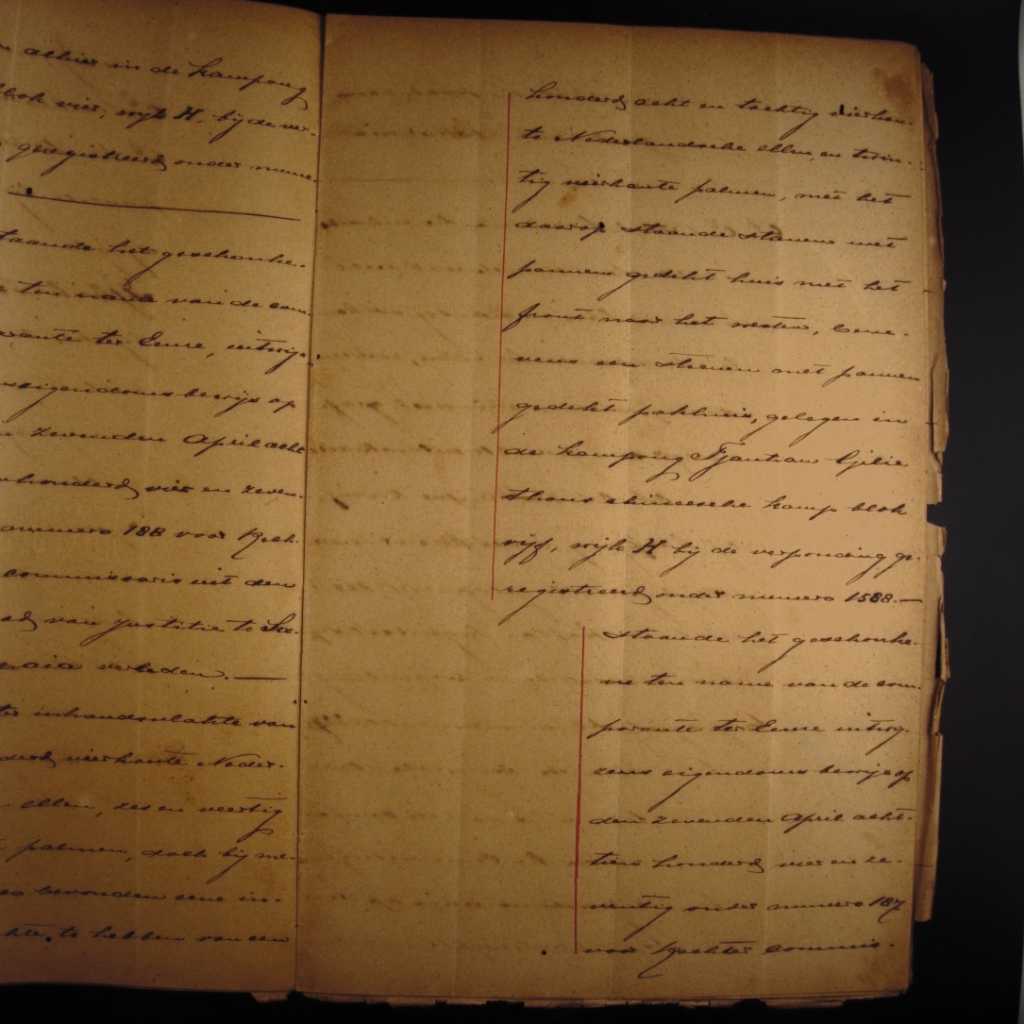 alhier in de kampong
blok vier, wijk H. bij de ver-
geregistreerd onder nume-
staande het geschonke-
ne ten name van de com-
parante ter Eenre, uitwij-
eigendoms bewijs op
zevenden April acht
honderd vier en zeven-
nummero 188 voor Rech-
commissaris uit den
van justitie te Soe-
verleden.
inhoudsvlakte van
vierkante Neder-
ellen, zes en veertig
palmen, doch bij me-
bevonden eene in-
te hebben van een
honderd acht en tachtig vierkan-
te Nederlandsche ellen en twin-
tig vierkante palmen, met het
daarop staande steenen met
pannen gedekt huis met het
front naar het westen, bene-
vens een steenen met pannen
gedekt pakhuis, gelegen in
de kampong Tjantian
thans chineesche kamp blok
vijf, wijk H bij de verponding ge-
registreerd onder numero 1588.—
staande het geschonke-
ne ten name van de com-
parante ter Eenre uitwij-
zens eigendoms bewijs op
den zevenden April acht-
tien honderd vier en ze-
ventig onder numero 187
voor Rechter commis-